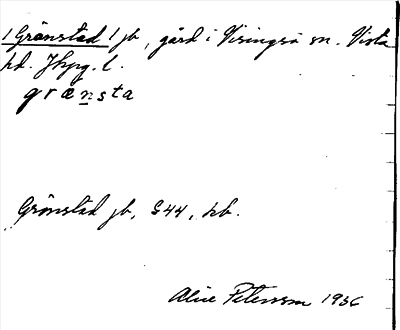 /Grönstad/ jb, gård i Visingsö sn. Vista
hd. Jkpg. l.
grœnsta
Grönstad jb, S44, hb.
Alice Petersson 1936